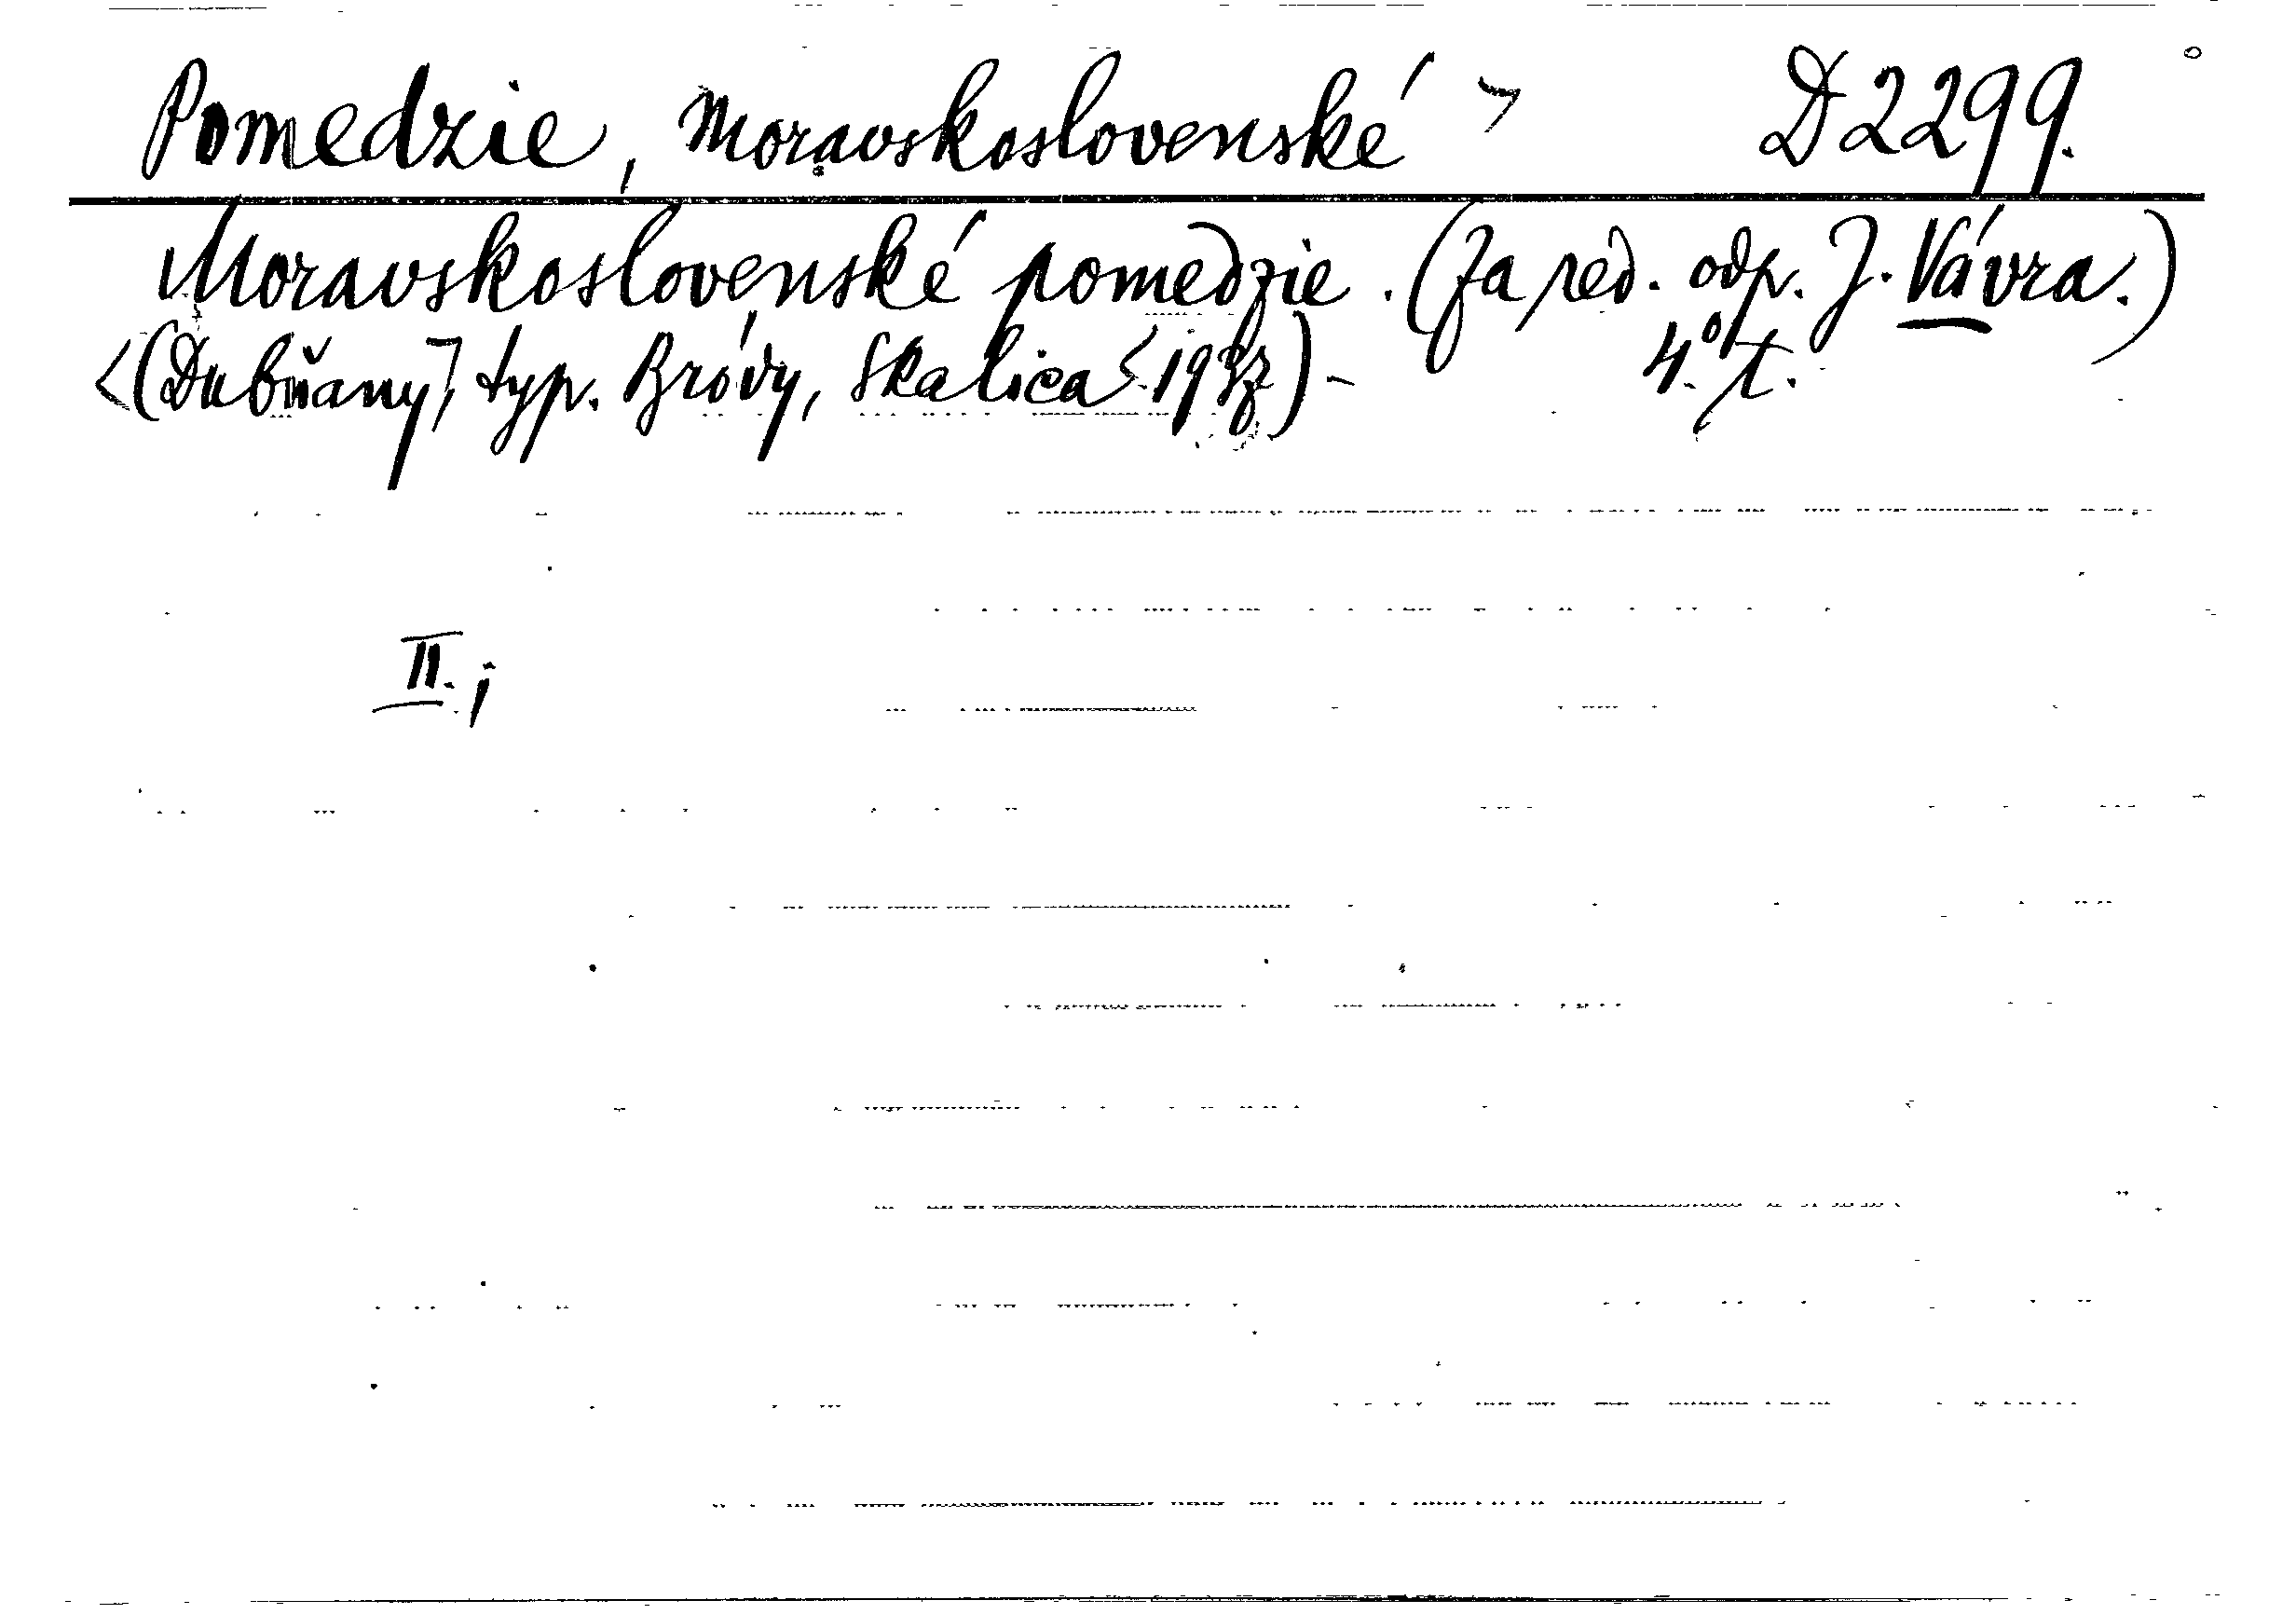 Pomedzie, Moravskoslovenské > D 2299.
Moravskoslovenské pomedzie. (Za red. odp. J. Vávra.)
<(Dubňany), typ. Bróvy, Skalica < ) - 4.° t.
II. ;